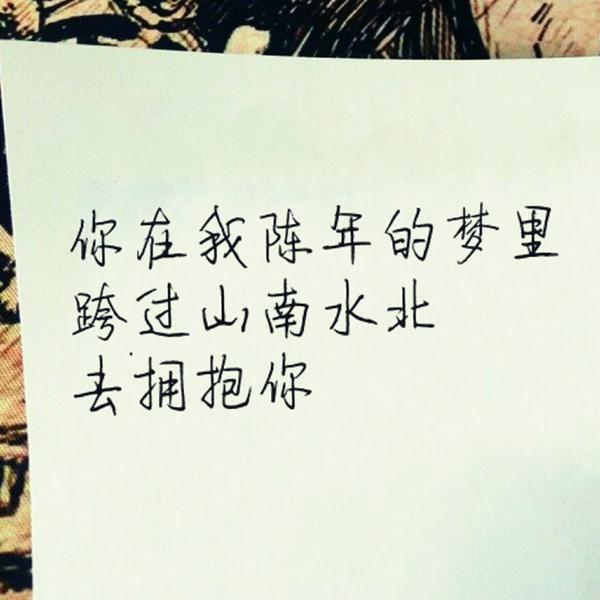 你在我陈年的梦里
跨过山南水北
去拥抱你